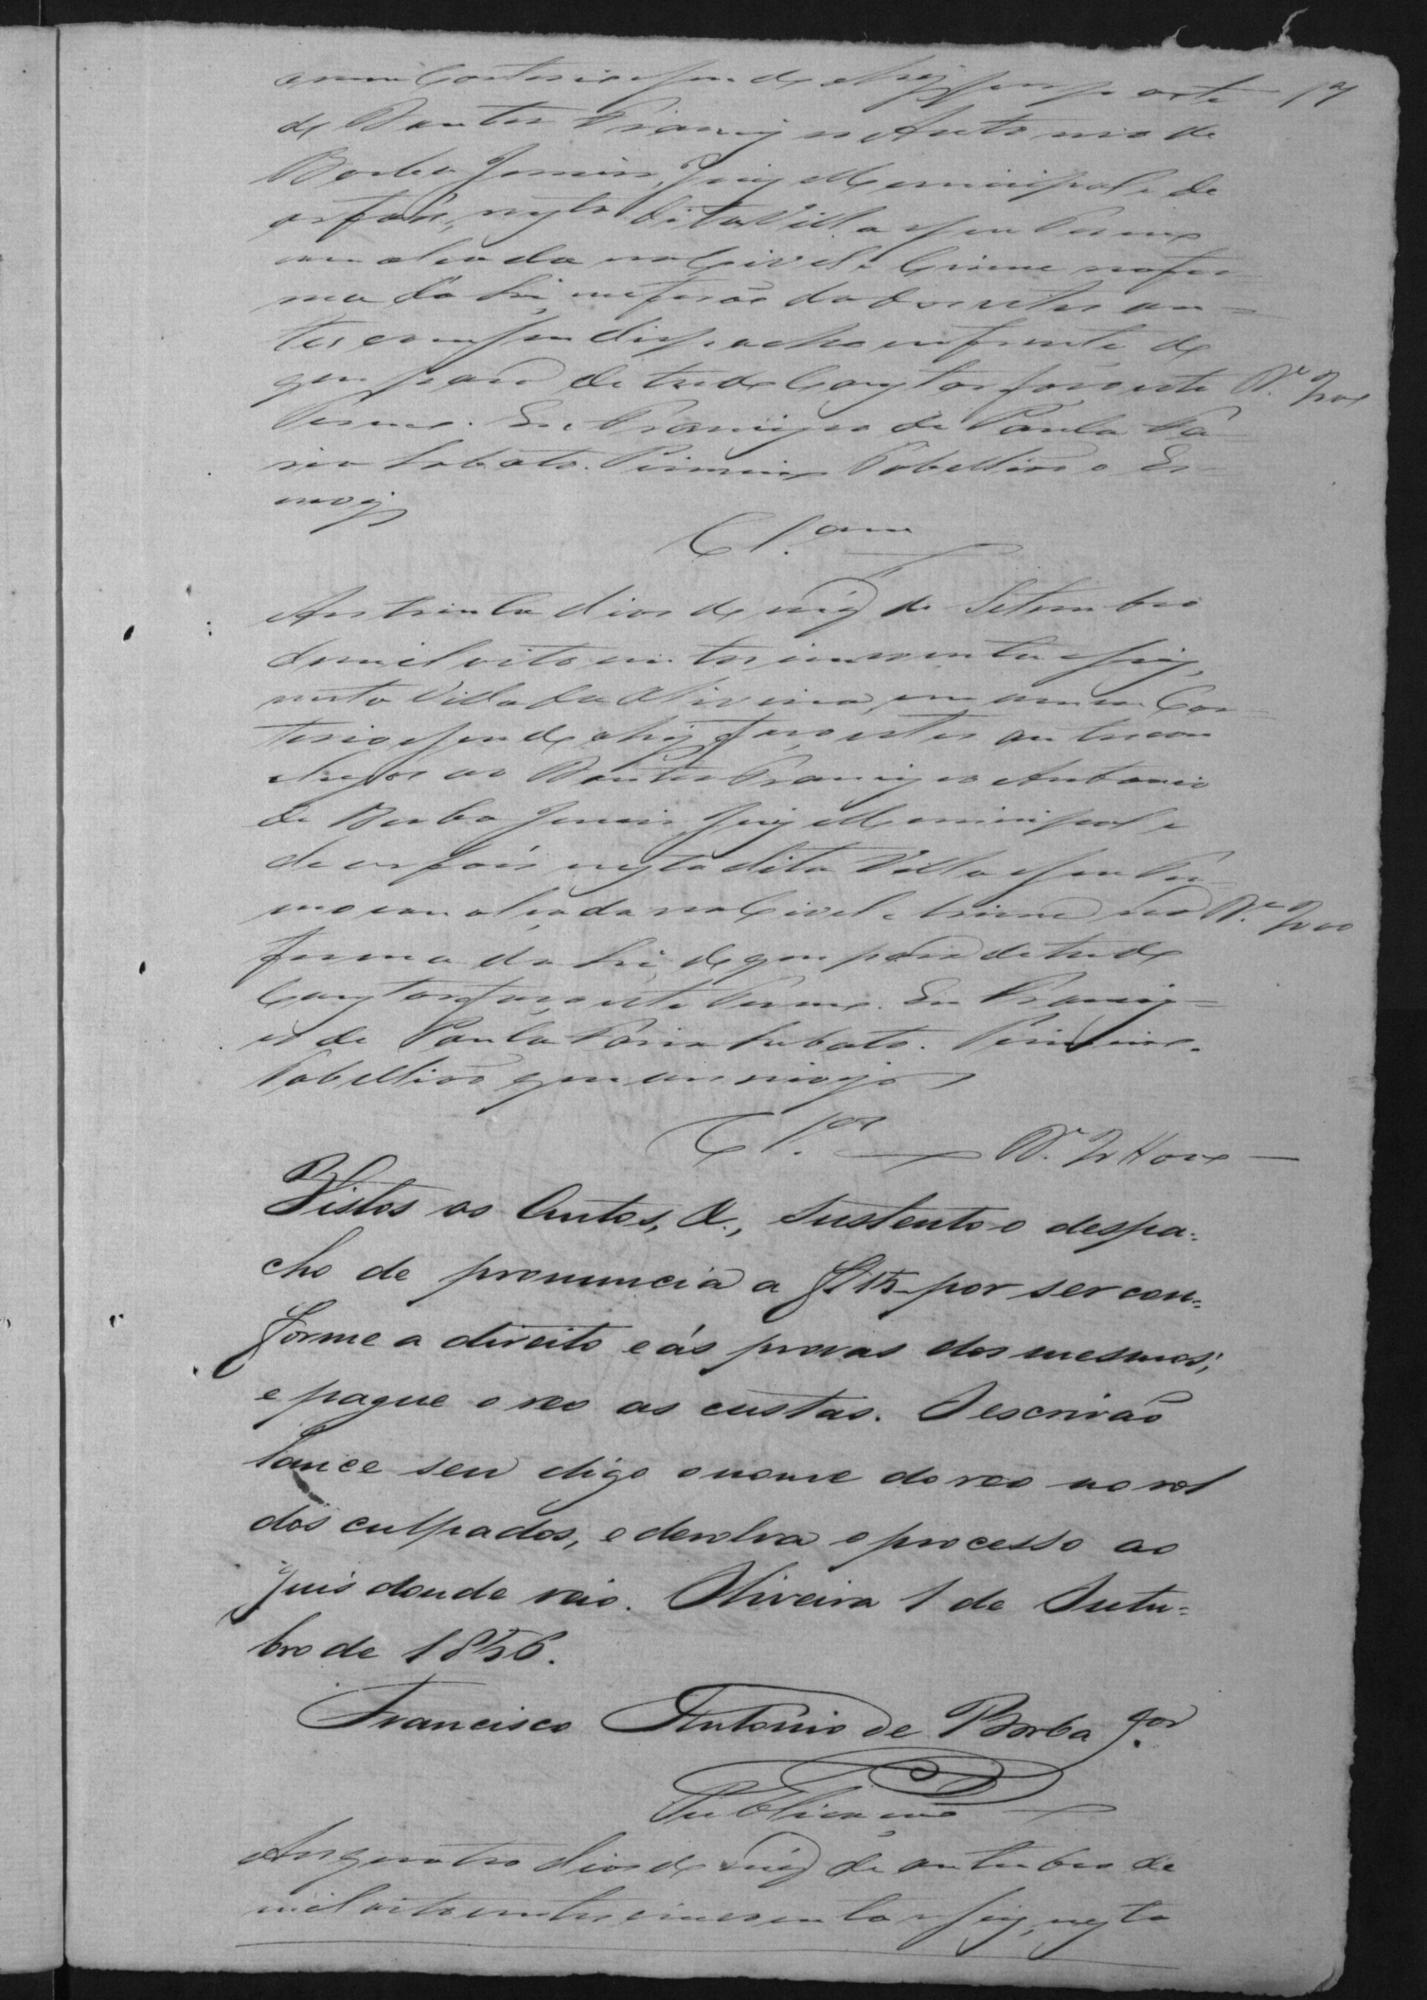 em meu Cartorio sendo ahy por parte
do Doutor Francisco Antonio de
Borba Junior, Juiz Municipal e de
orfaõs, nesta dita Villa e seu Termo
com alçada no Civel e Crime na for-
ma da Lei me foraõ dados estes au-
tos com seu despacho em frente de
que para de tudo constar faço este
Termo. Eu Francisco de Paula Fa
ria Lobato. Primeiro Tabelliaõ o Es-
crevy
Cl.am
Aos trinta dias do mez de Setembro
de mil oito centos, e cincoenta e seis,
nesta Villa da Oliveira, em meu Car-
torio sendo ahy faço estes autos con
clusos ao Doutor Francisco Antonio
de Borba Junior, Juiz Municipal e
de orfaõs nesta dita Villa e seu Ter-
mo com alçada no Civel e Crime na
forma da Lei, de que para de tudo
Constar faço este Termo. Eu Francis-
co de Paula Faria Lobato. Primeiro
Tabelliaõ que escrevy
Cl.os
Vistos os Autos, &., sustento o despa-
cho de pronuncia a f. 15 por ser con-
forme a direito e ás provas dos mesmos;
e pague o reo as custas. O escrivão
lance seu digo o nome do reo no rol
dos culpados, e devolva o processo ao
Juis donde veio. Oliveira 1 de Outu-
bro de 1856.
Francisco Antonio de Borba J.or
Publicação
Aos quatro dias do mez de outubro de
mil oito centos cincoenta e seis, nesta